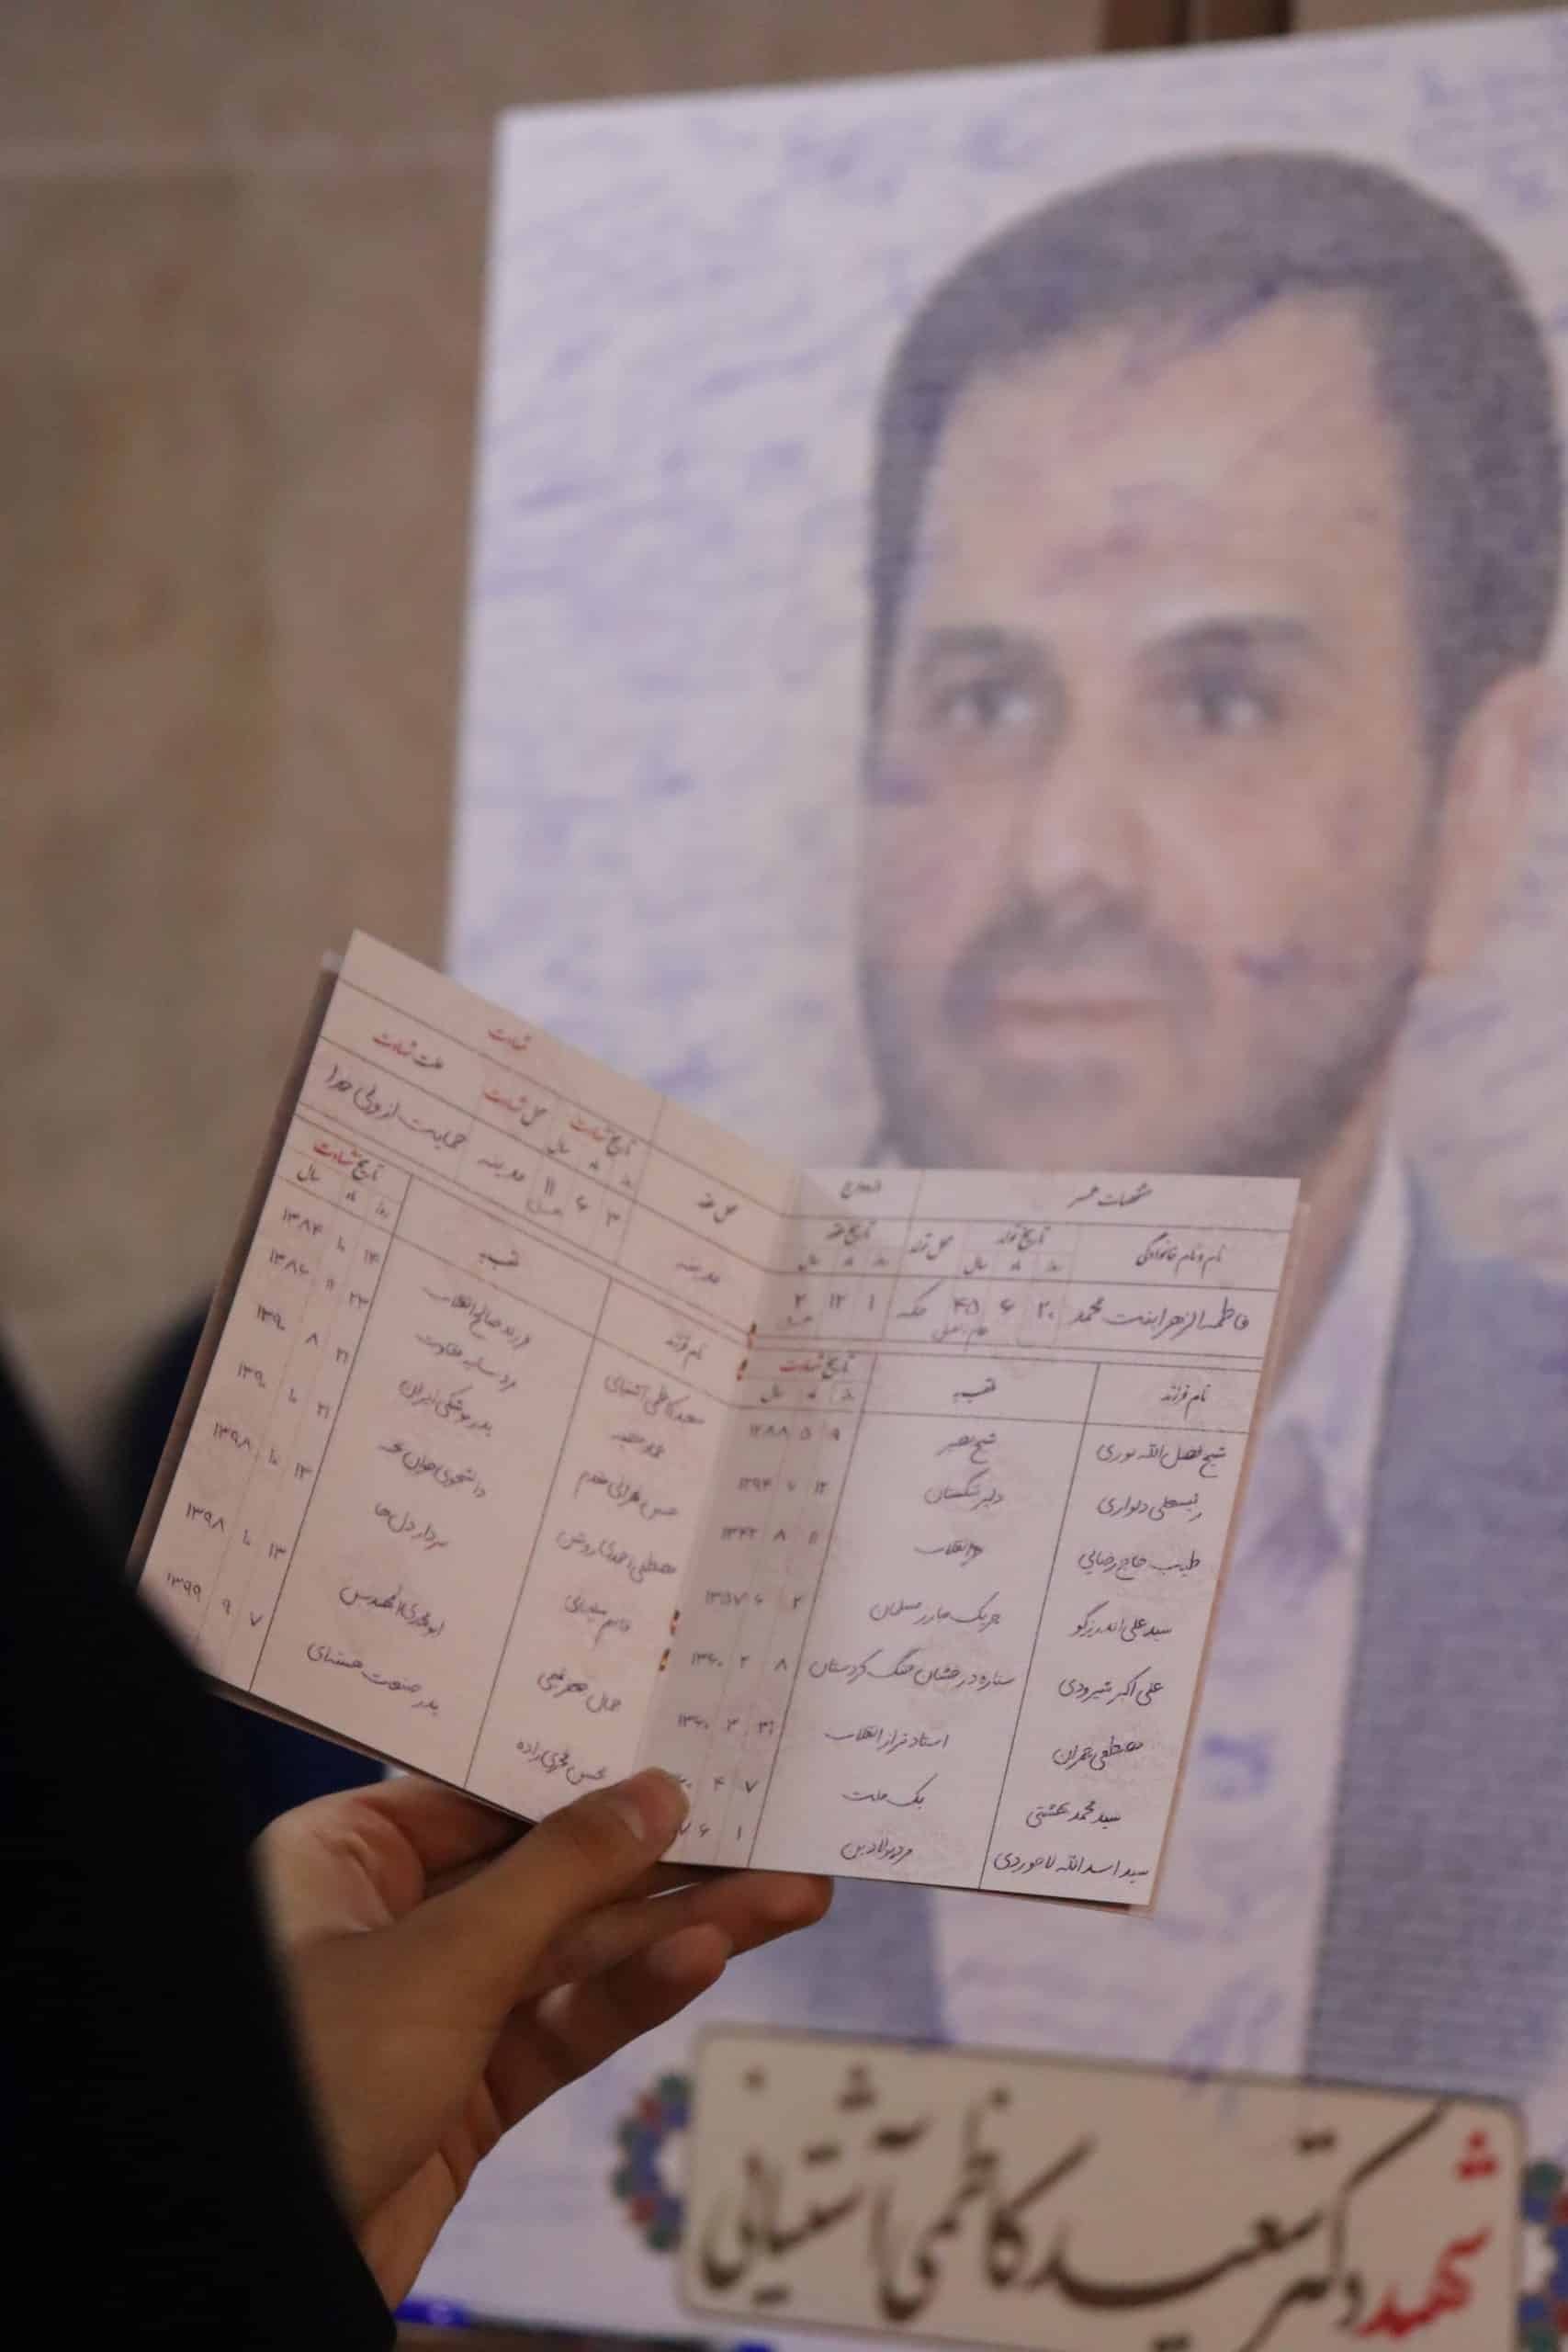 مشخصات همسر
ازدواج
نام و نام خانوادگی
تاریخ تولد
محل تولد
تاریخ عقد
روز ماه سال
روز ماه سال
فاطمه الزهرا بنت محمد
۲۰ ۶ ۴۵
عام الفیل
مکه
۱ ۱۲ ۲
نام فرزند
لقب
تاریخ شهادت
روز ماه سال
شیخ فضل الله نوری
شیخ بصیر
۹ ۵ ۱۲۸۸
رئیسعلی دلواری
دلیر تنگستان
۱۲ ۷ ۱۲۹۴
طیب حاج رضایی
حر انقلاب
۱۱ ۸ ۱۳۴۲
سید علی اندرزگو
چریک مبارز مسلمان
۲ ۶ ۱۳۵۷
علی اکبر شیرودی
ستاره درخشان جنگ کردستان
۸ ۲ ۱۳۶۰
مصطفی چمران
استاد فراز انقلاب
۳۱ ۳ ۱۳۶۰
سید محمد بهشتی
یک ملت
۷ ۴
سید اسدالله لاجوردی
مرد پولادین
۱ ۶
شهادت
محل عقد
تاریخ شهادت
محل شهادت
علت شهادت
روز ماه سال
مدینه
۳ ۶ ۱۱
مدینه
حمایت از ولی خدا
نام فرزند
لقب
تاریخ شهادت
روز ماه سال
سعید کاظمی آشتیانی
فرزند صالح انقلاب
۱۴ ۱۰ ۱۳۸۴
عماد مغنیه
مرد سایه مقاومت
۲۳ ۱۱ ۱۳۸۶
حسن طهرانی مقدم
پدر موشکی ایران
۲۱ ۸ ۱۳۹۰
مصطفی احمدی روشن
دانشجوی جوان
۲۱ ۱۰ ۱۳۹۰
قاسم سلیمانی
سردار دل ها
۱۳ ۱۰ ۱۳۹۸
جمال جعفر
ابومهدی المهندس
۱۳ ۱۰ ۱۳۹۸
محسن فخری زاده
پدر صنعت هسته‌ای
۷ ۹ ۱۳۹۹
شهید دکتر سعید کاظمی آشتیانی